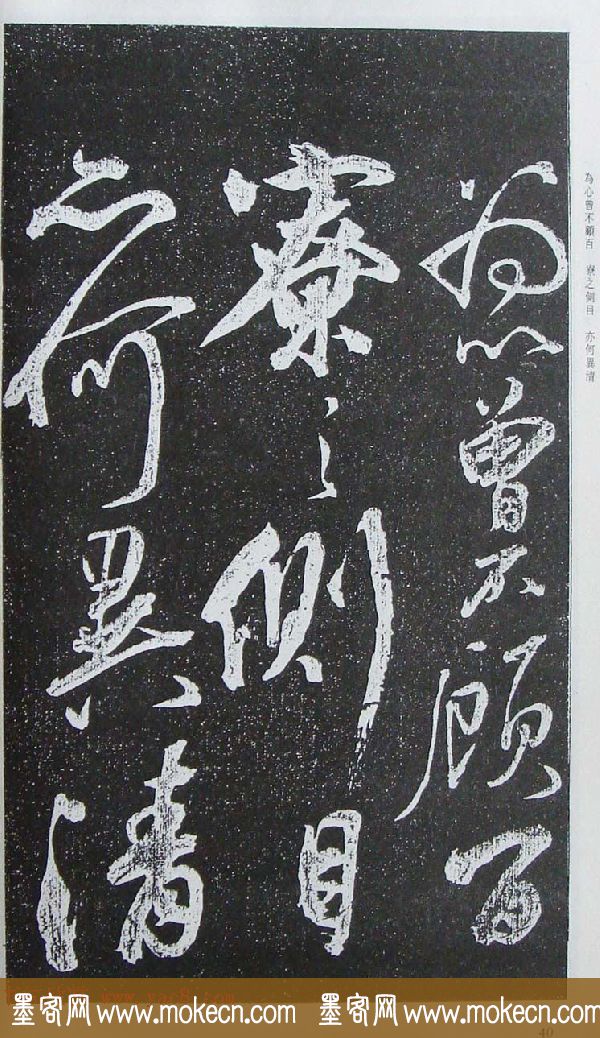 为心曾不顾百
寮之側目
亦何異清
為心曾不顧百 寮之側目 亦何異清
墨客网 www.mokecn.com 墨客网 www.mokecn.com
40